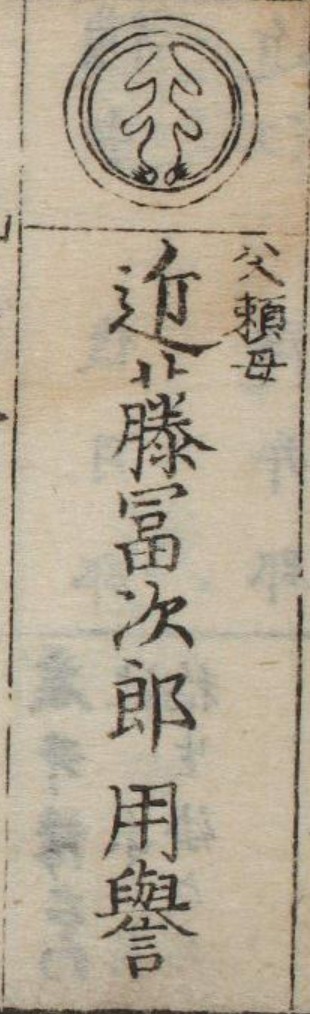 父頼母
近藤冨次郎 用譽